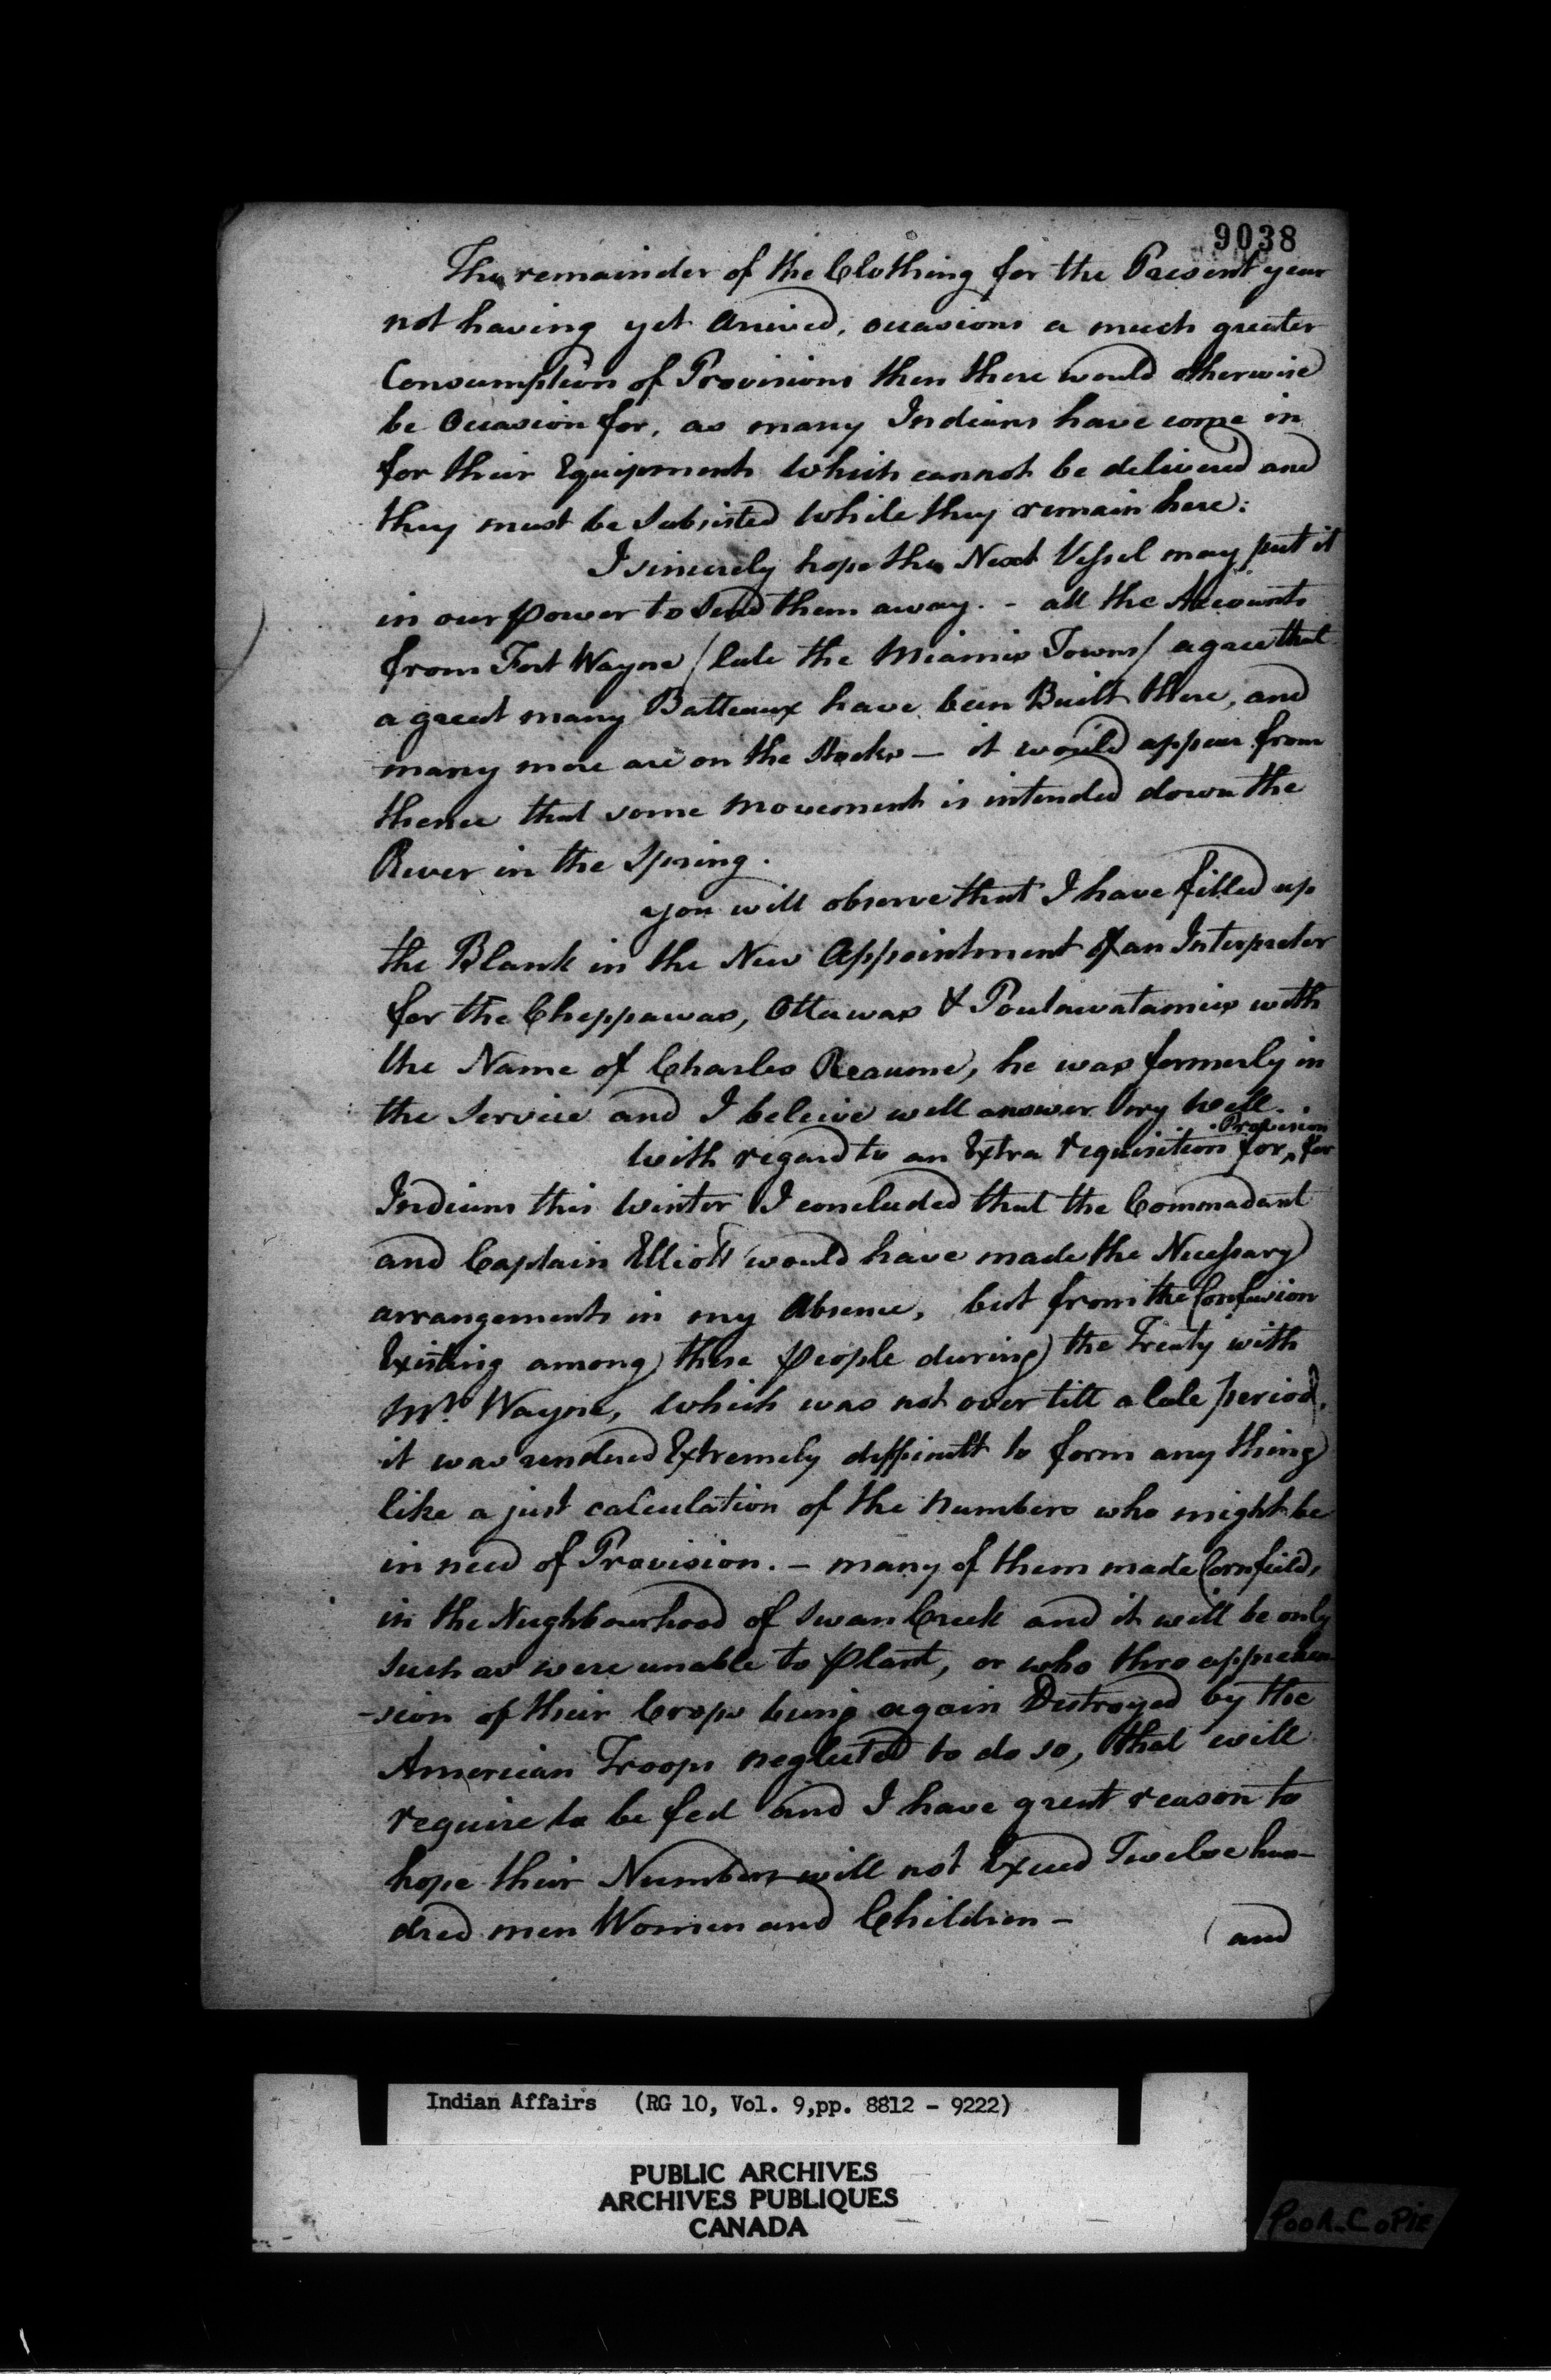 9038
The remainder of the Clothing for the Present year
not having yet Arrived, occasions a much greater
Consumption of Provisions then there would otherwise
be Occasion for, as many Indians have come in
for their Equipments which cannot be delivered and
they must be Subsisted while they remain here:
I sincerely hope the Next Vessel may put it
in our power to Send them away. - all the Accounts
from Fort Wayne / late the Miamis Towns / agree that
a great many Batteaux have been Built there, and
many more are on the Stocks — it would appear from
thence that some movement is intended down the
River in the Spring.
you will observe that I have filled up
the Blank in the New Appointment of an Interpreter
for the Cheppawas, Ottawas & Poutawatamies with
the Name of Charles Reaume, he was formerly in
the Service and I beleive will answer Very well.
Provision
With regard to an Extra requisition for ‸ for
Indians this Winter I concluded that the Commadant
and Captain Elliott would have made the Necessary
arrangements in my Absence, but from the Confusion
Existing among these people during the Treaty with
Mr. Wayne, which was not over till a late period,
it was rendered Extremely difficult to form any thing
like a just calculation of the numbers who might be
in need of Provision. - many of them made Cornfields
in the Neighbourhood of Swan Creek and it will be only
such as were unable to plant, or who thro apprehen
-sion of their Crops being again Destroyed by the
American Troops neglected to do so, that will
require to be fed and I have great reason to
hope their Numbers will not Exceed Twelve hun-
dred men Women and Children -
(and
Indian Affairs (RG 10, Vol. 9,pp. 8812 - 9222)
PUBLIC ARCHIVES
ARCHIVES PUBLIQUES
CANADA
POOR COPIE